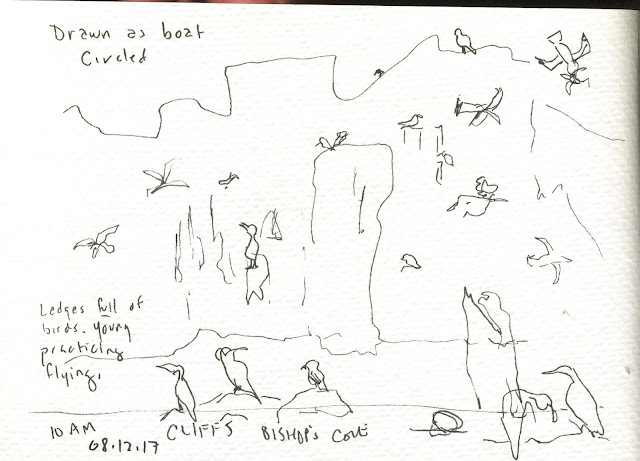 Drawn as boat
Circled
Ledges full of
birds. Young
practicing
flying.
10 AM
08.12.17
CLIFFS
BISHOP'S COVE